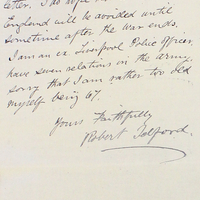 letter. I do hope
England will be avoided until
sometime after the war ends.
I am an ex Liverpool Police Officer,
have seven relations in the army,
sorry that I am rather too old
myself being 67.
Yours Faithfully
Robert Telford.